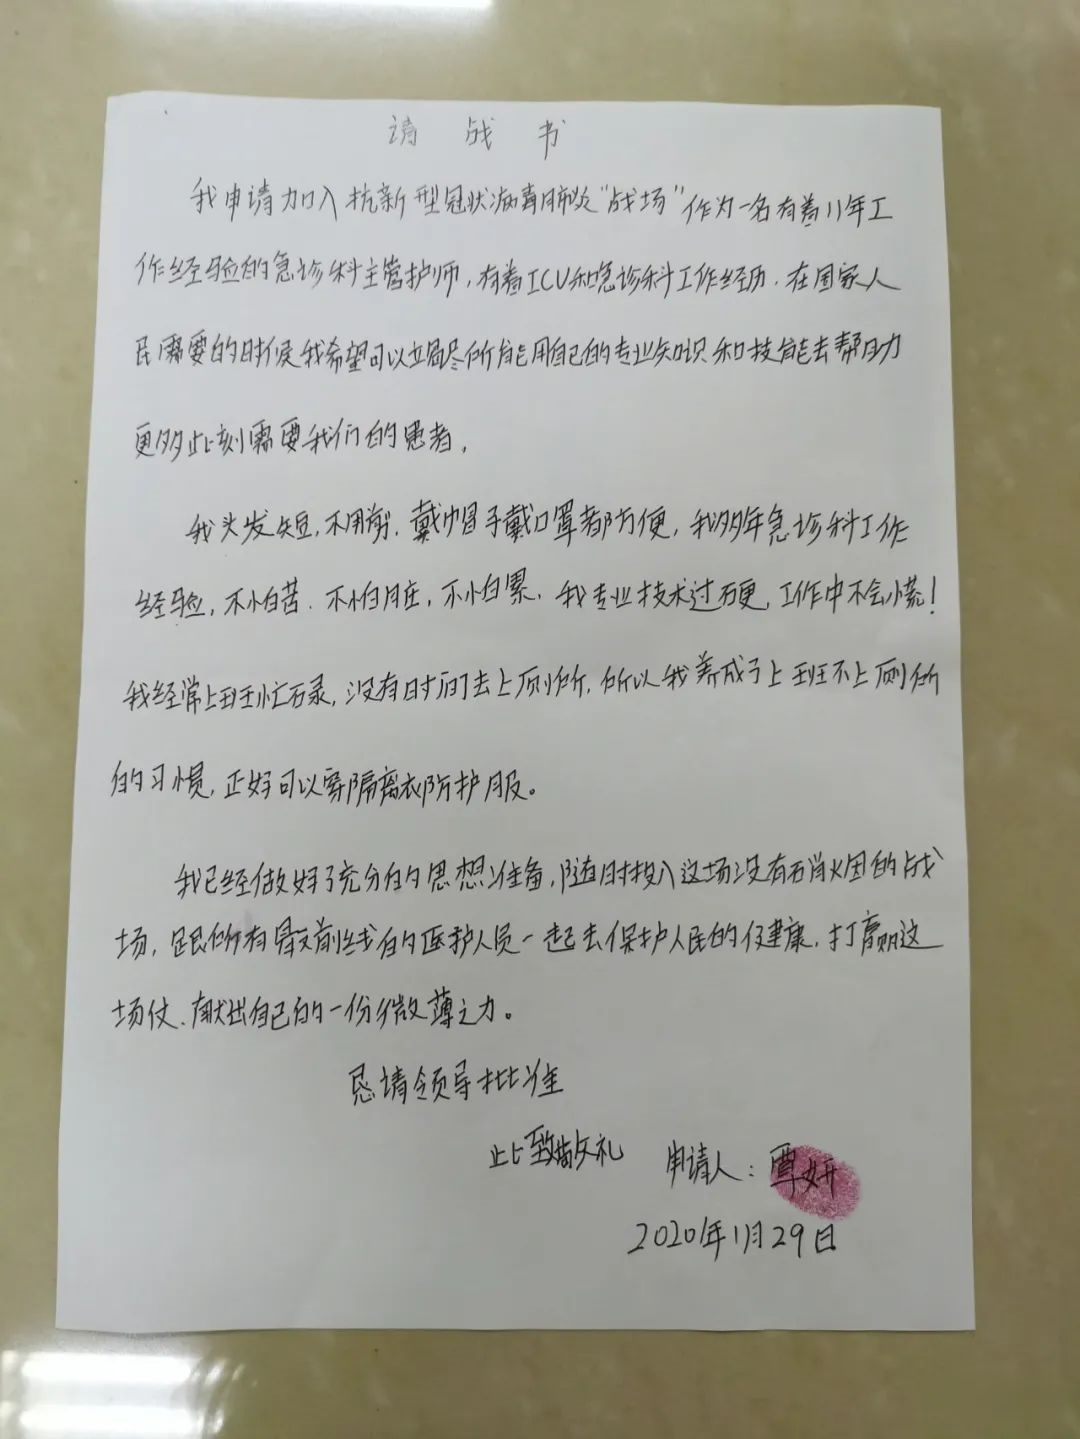 请战书
我申请加入抗新型冠状病毒肺炎“战场”作为一名有着11年工
作经验的急诊科主管护师,有着ICU和急诊科工作经历.在国家人
民需要的时候我希望可以竭尽所能用自己的专业知识和技能去帮助
更多此刻需要我们的患者.
我头发短,不用剪.戴帽子戴口罩都方便,我多年急诊科工作
经验,不怕苦.不怕脏,不怕累.我专业技术过硬,工作中不会慌!
我经常上班忙碌,没有时间去上厕所,所以我养成了上班不上厕所
的习惯,正好可以穿隔离衣防护服。
我已经做好了充分的思想准备,随时投入这场没有硝烟的战
场,跟所有最前线的医护人员一起去保护人民的健康,打赢这
场仗.献出自己的一份微薄之力。
恳请领导批准
此致敬礼 申请人:覃妍
2020年1月29日